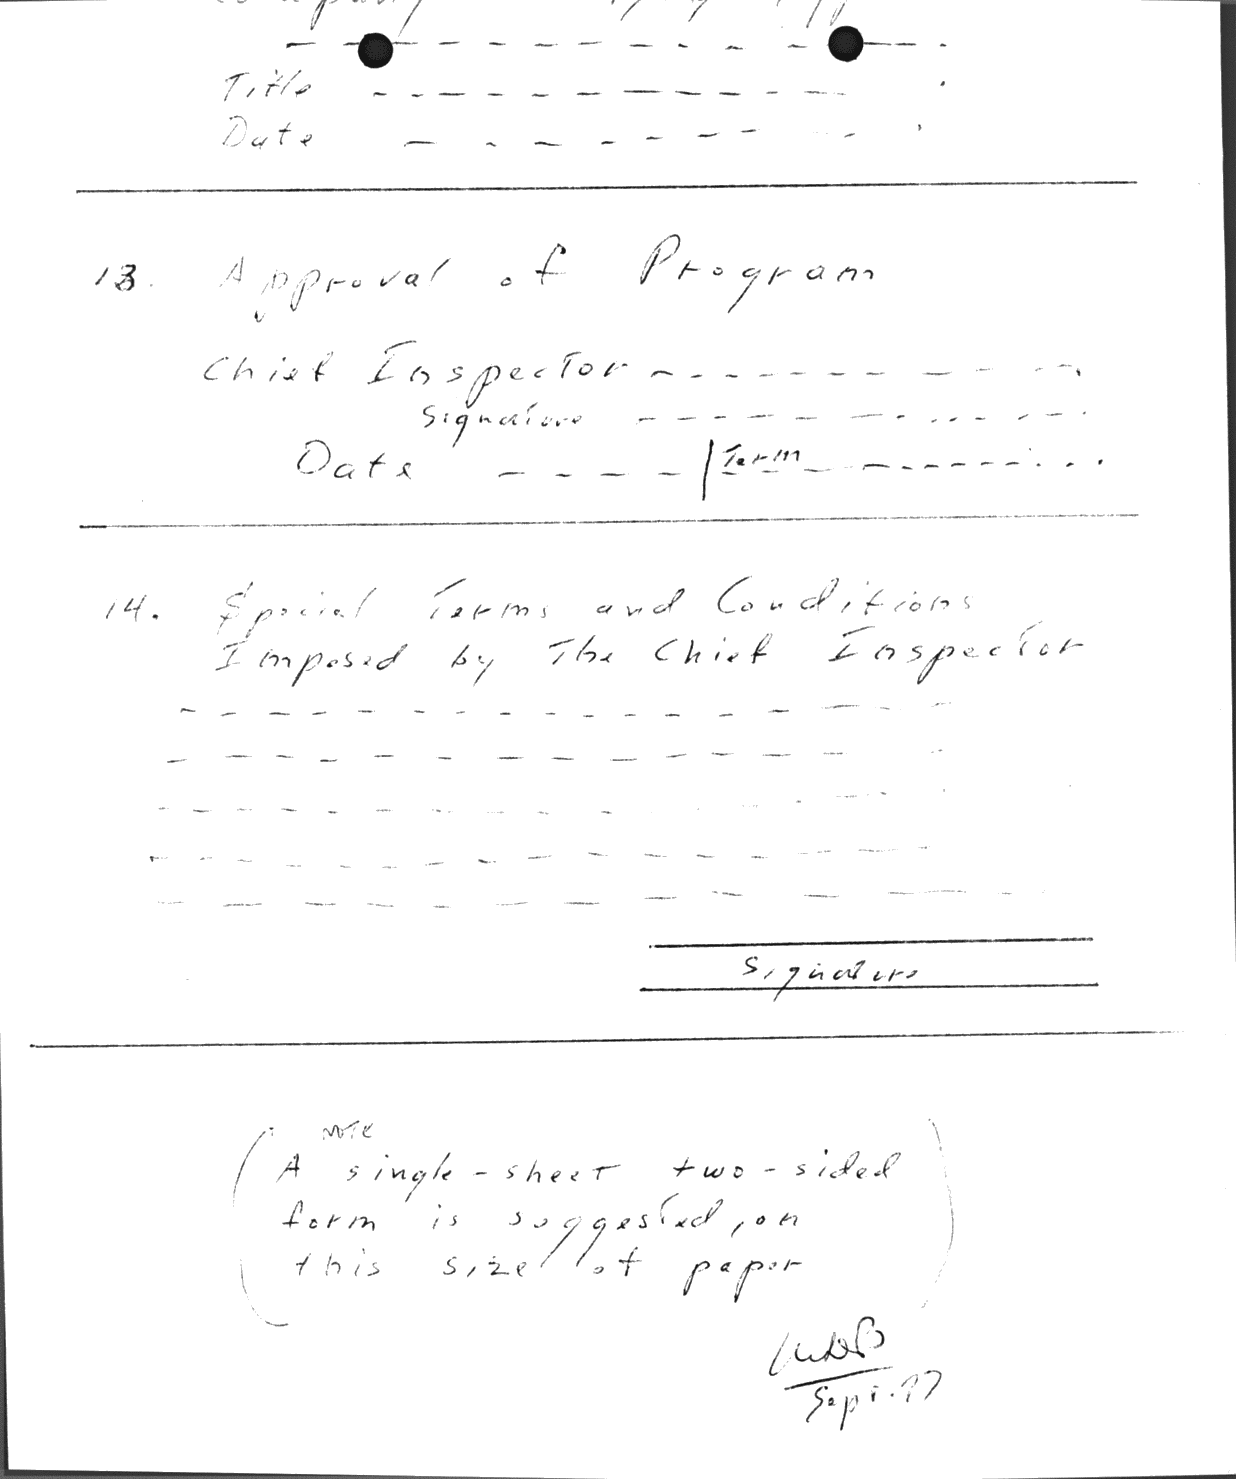 Company
Title
Date
13. Approval of Program
Chief Inspector
Signature
Date | Term
14. Special Terms and Conditions
Imposed by The Chief Inspector
Signature
NOTE
(A single-sheet two-sided
form is suggested, on
this size of paper)
Sept. 77